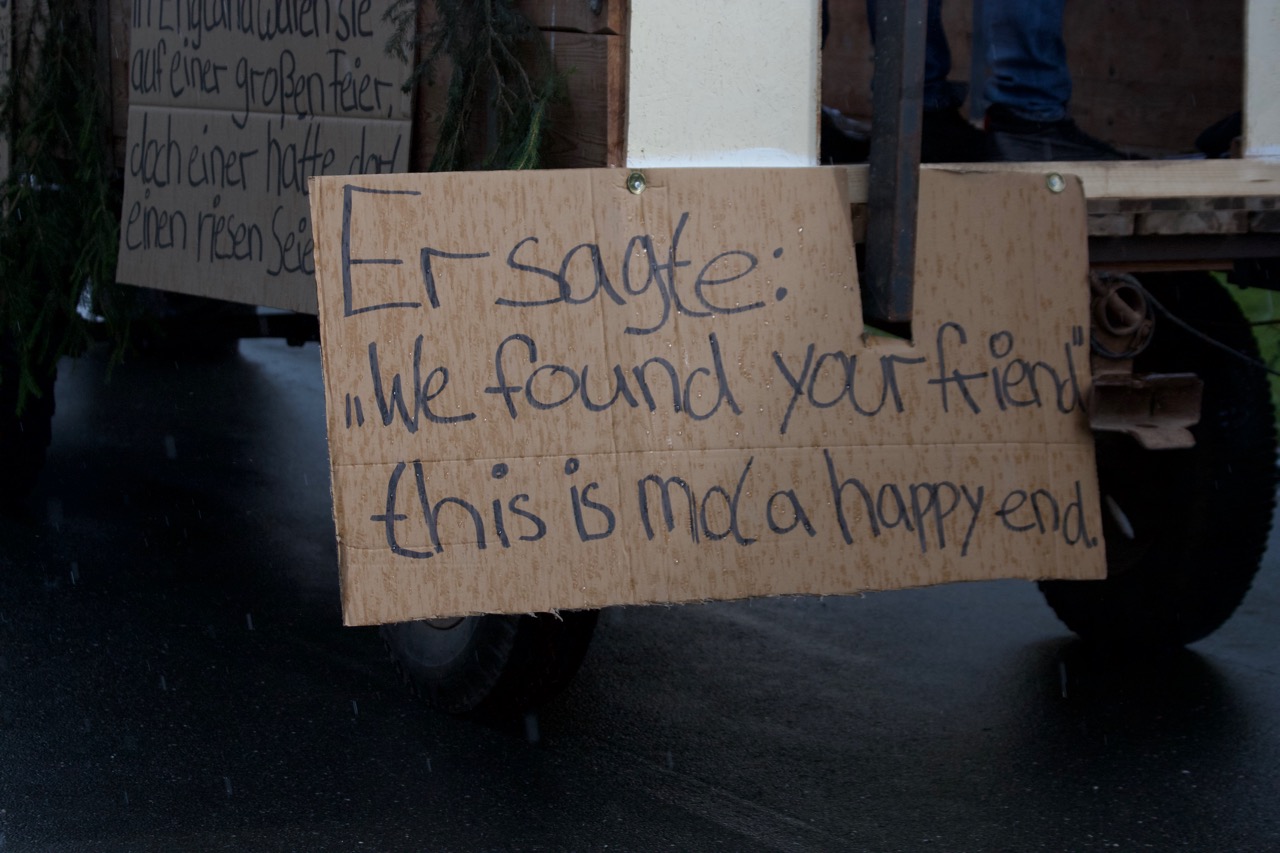 in England waren sie
auf einer großen Feier,
doch einer hatte dort
einen riesen
Er sagte:
„We found your friend"
this is mot a happy end.